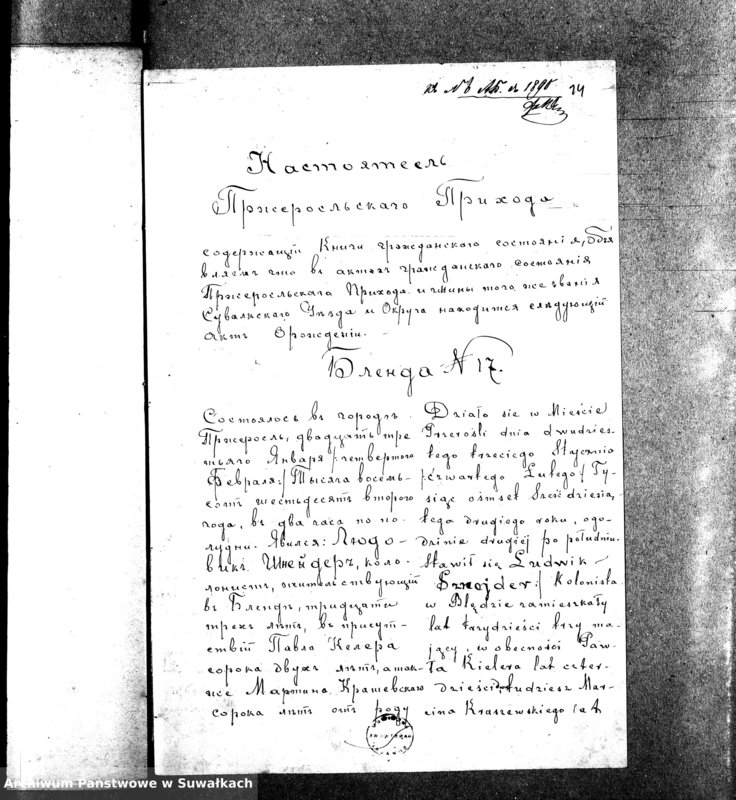 къ № Аб. съ 1890 14
Настоятель
Пржеросльскаго Прихода
содержащій Книги гражданскаго состоянія, объя
вляетъ что въ актахъ гражданскаго состоянія
Пржеросльскаго Прихода и гмины того же званія
Сувалкскаго Уѣзда и Округа находится слѣдующій
Актъ О рожденіи.
Бленда N 17.
Состоялось въ городѣ
Пржеросль, двадцать тре
тьяго Января /:четвертого
Февраля:/ Тысяча восемь-
сотъ шестьдесятъ второго
года, въ два часа по по-
лудни. Явился: Людо-
викъ Шнейдеръ, коло-
нистъ, жительствующій
въ Блендѣ, тридцати
трехъ лѣтъ, въ присут-
ствіи Павла Келера
сорока двухъ лѣтъ, а так-
же Мартина Крашевскаго
сорока лѣтъ отъ роду
Działo się w Mieście
Przerośli dnia dwudzies-
tego trzeciego Stycznia
/:czwartego Lutego/ Ty-
siąc ośmset Sześćdziesią-
tego drugiego roku, ogo-
dzinie drugiéj po południu.
Stawił się Ludwik
Sznejder:/ Kolonista
w Blędzie zamieszkały
lat trzydzieści trzy ma-
jący, w obecności Paw-
ła Kielera lat czter-
dzieści 2, tudziesz Mar-
cina Kraszewskiego la 4
Archiwum Państwowe w Suwałkach